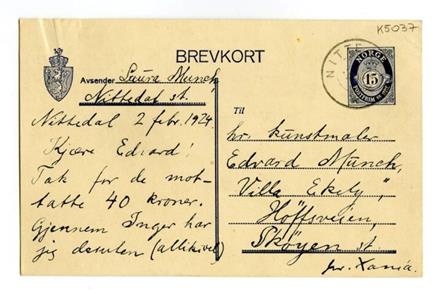 K5037
BREVKORT
Avsender Laura Munch
Nittedal st.
NITTE
NORGE
15
Til
Nittedal 2 febr. 1924.
Kjære Edvard!
Tak for de mot-
tatte 40 kroner.
Gjennem Inger har
jeg desuten (allikevel)
hr. kunstmaler
Edvard Munch,
"Villa Ekely",
Høffsveien,
Skøyen st.
pr. Xania.